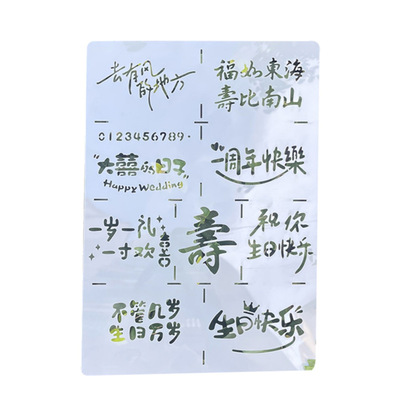 去有风
的地方
福如東海
壽比南山
0123456789.
"大囍的日子"
Happy Wedding
"一周年快樂
一岁一礼
一寸欢喜
壽
祝你
生日快乐
不管几岁
生日万岁
生日快乐